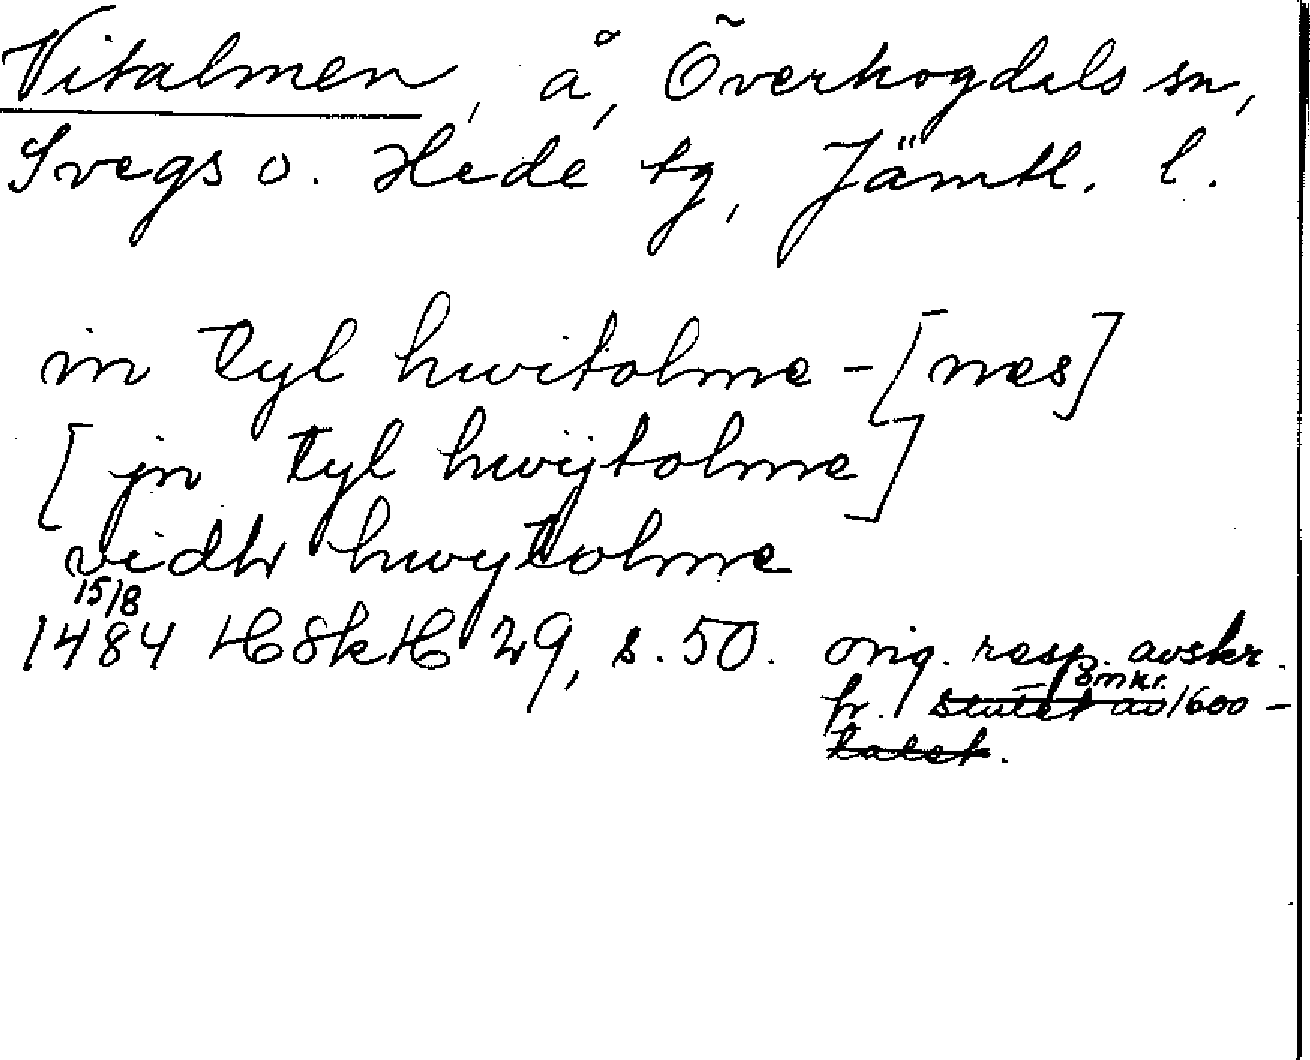 Vitalmen, å, Överhogdals sn,
Svegs o. Hede tg, Jämtl. l.
in tyl hwitolme-[nes]
[jn tyl hwijtolme]
vidh hwytolme
15/8
1484 HSkH 29, s. 50. orig. resp. avskr.
fr. slutet av omkr. 1600-
talet.